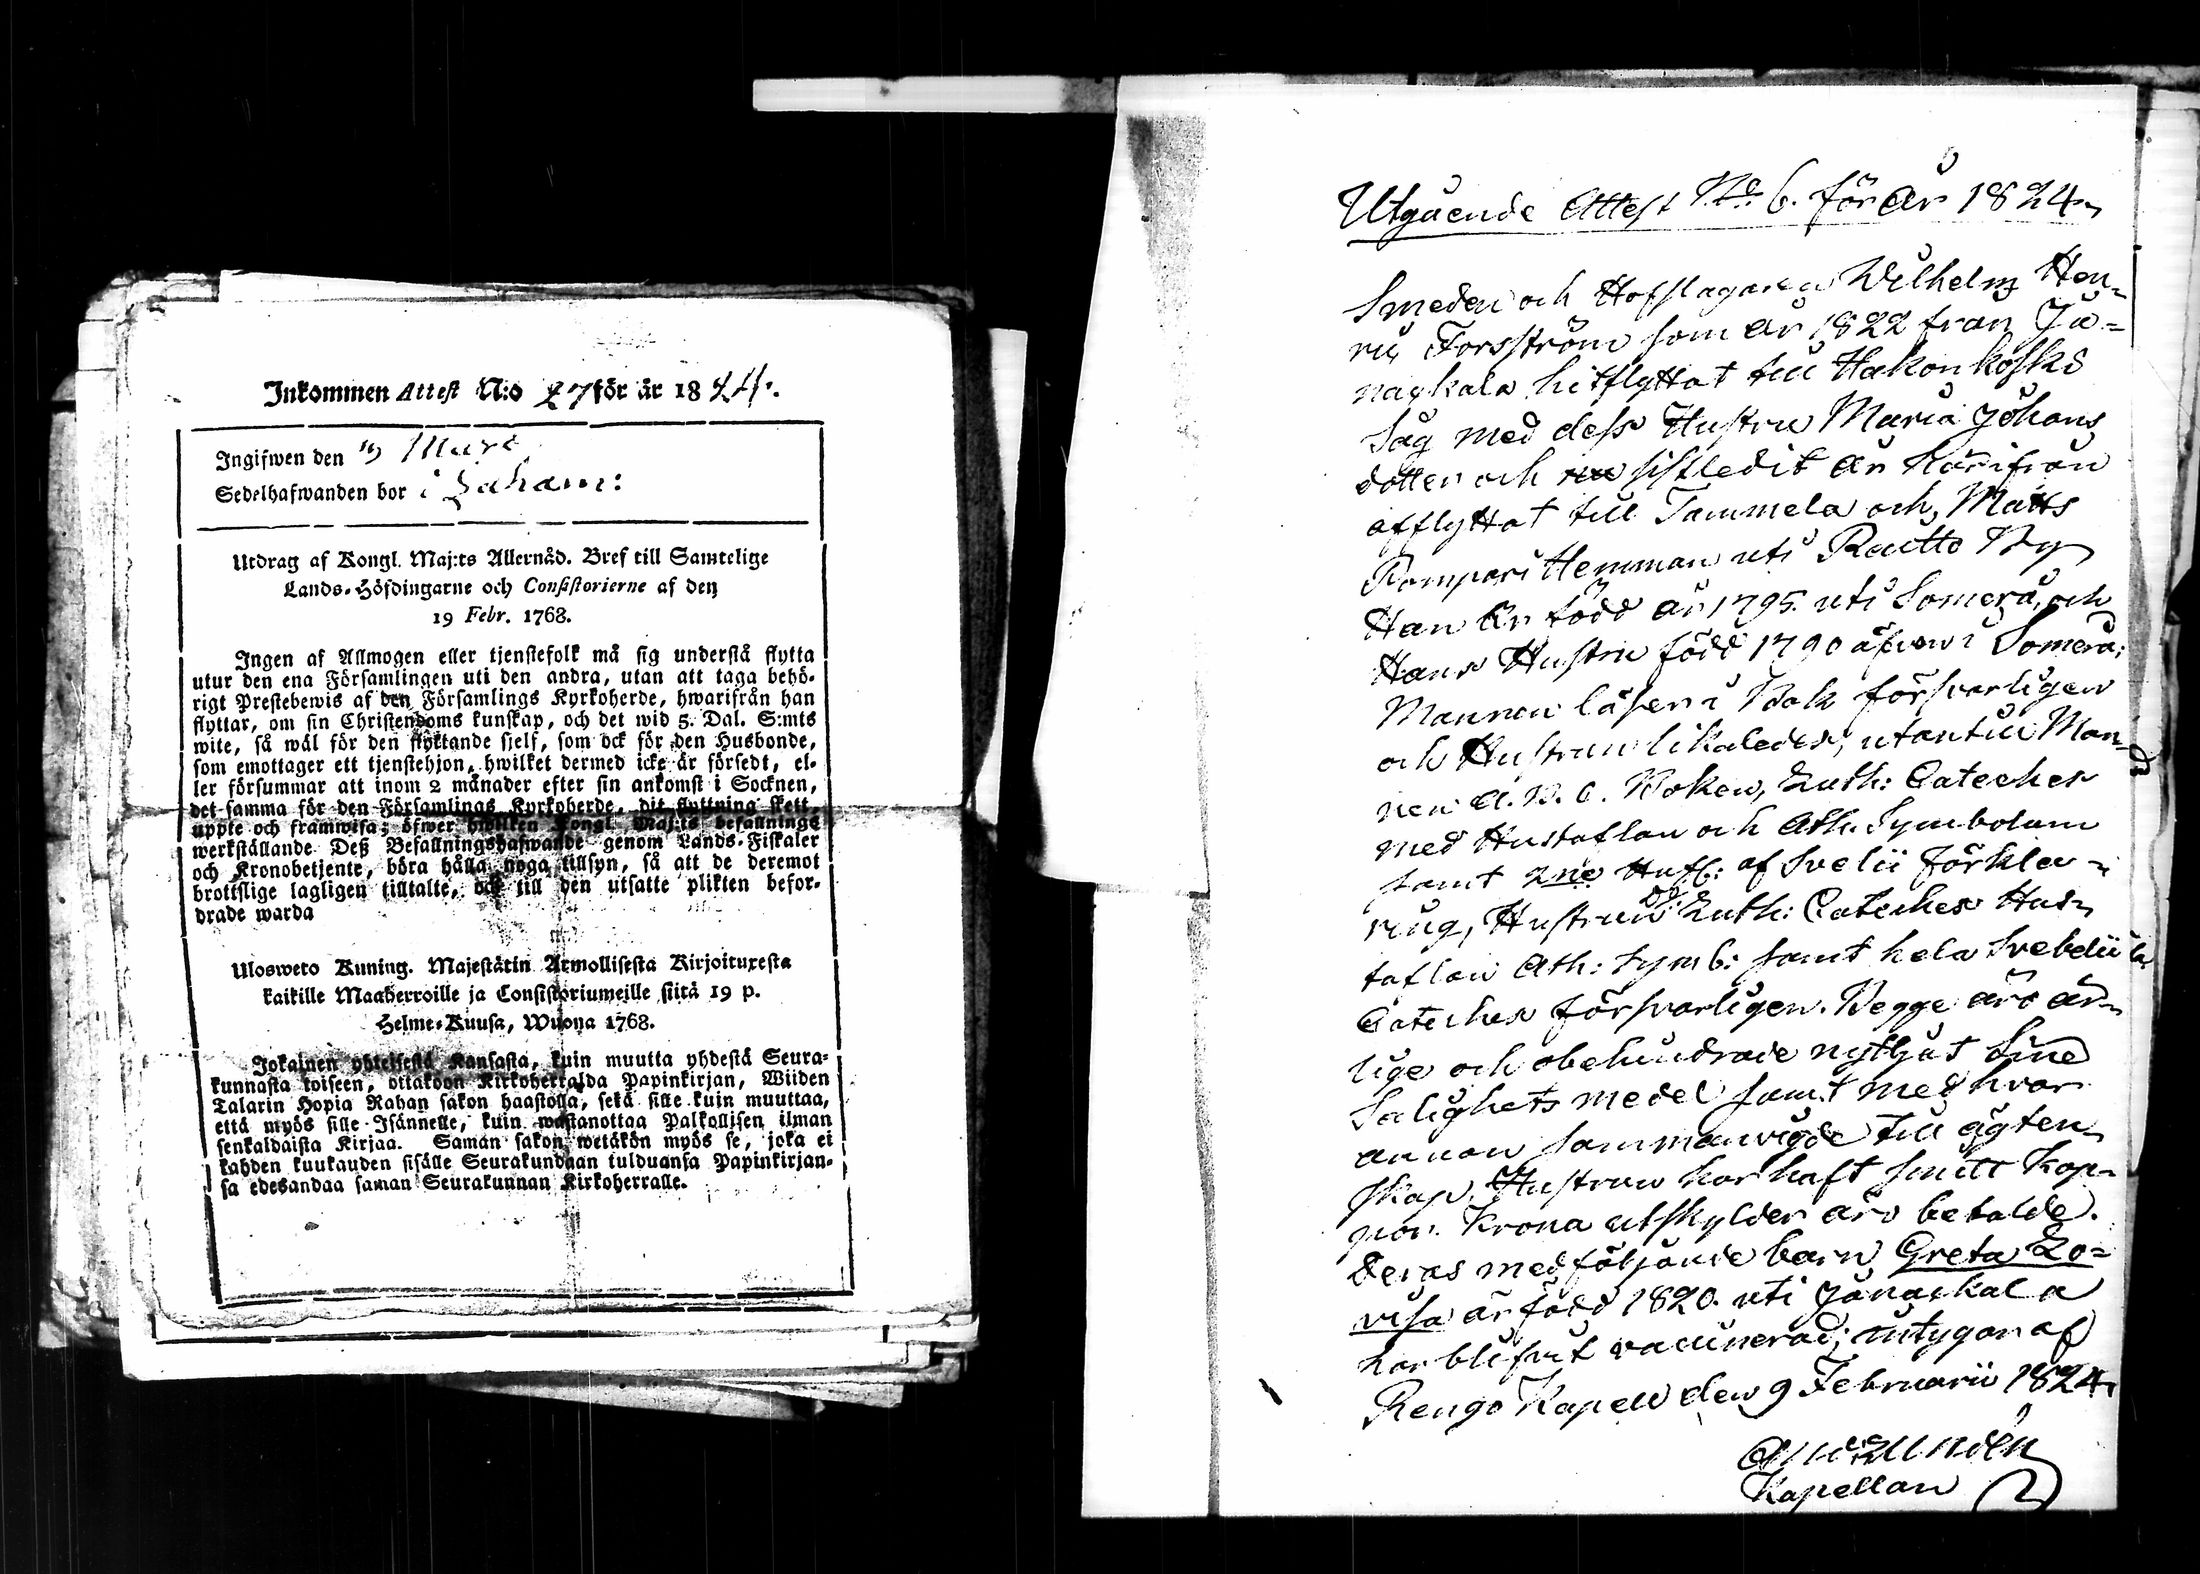 Inkommen Attest N:o 27 för år 1824.
Ingifwen den Mars
Sedelhafwanden bor i
Utdrag af Kongl. Maj:ts Allernåd. Bref till Samtelige
Lands-Höfdingarne och Consistorierne af den
19 Febr. 1768.
Ingen af Allmogen eller tjenstefolk må sig understå flytta
utur den ena Församlingen uti den andra, utan att taga behö-
rigt Prestebewis af den Församlings Kyrkoherde, hwarifrån han
flyttar, om sin Christendoms kunskap, och det wid 5. Dal. S:mts
wite, så wäl för den flyttande sjelf, som ock för den Husbonde,
som emottager ett tjenstehjon, hwilket dermed icke är försedt, el-
ler försummar att inom 2 månader efter sin ankomst i Socknen,
det samma för den Församlings Kyrkoherde, dit flyttning skett,
uppte och framwisa; öfwer hwilken Kongl. Maj:ts befallnings
werkställande Deß Befallningshafwande genom Lands-Fiskaler
och Kronobetjente, böra hålla noga tillsyn, så att de deremot
brottslige lagligen tilltalte, och till den utsatte plikten befor-
drade warda
Ulosweto Kuning. Majestätin Armollisesta Kirjoituxesta
kaikille Maaherroille ja Consistoriumeille siitä 19 p.
Helme-Kuusa, Wuona 1768.
Jokainen yhteisestä Kansasta, kuin muutta yhdestä Seura-
kunnasta toiseen, ottakoon Kirkoherralda Papinkirjan, Wiiden
Talarin Hopia Rahan sakon haastolla, sekä sille kuin muuttaa,
että myös sille Isännelle, kuin wastanottaa Palkollisen ilman
senkaldaista Kirjaa. Saman sakon wetäkön myös se, joka ei
kahden kuukauden sisälle Seurakundaan tulduansa Papinkirjan-
sa edesandaa saman Seurakunnan Kirkoherralle.
Utgående Attest No. 6. för år 1824
Smeden och Hofslagaren Wilhelm Hen-
rik Forsström som år 1822 från Ja-
nakkala hitflyttat till Hakonkoski
Såg med dess Hustru Maria Johans
dotter och sistledit år härifrån
afflyttat till Tammela och Matts
Rompari Hemman uti Rautto By
Han är född år 1795. uti Somero, och
Hans Hustru född 1790 äfven i Somero;
Mannen läser i Bok försvarligen
och Hustrun likaledes, utantill Man-
nen A.B.C. Boken, Luth: Cateches
med Hustaflan och Ath. Symbolum
samt 2ne Huf: af Svelii förkla-
ring, Hustrun d:o Luth: Cateches Hus-
taflan Ath: Symb: samt hela Svebelii
Cateches försvarligen. Begge äro är-
lige och obehindrade nyttjat Sine
Salighets medel samt med hvar
annan sammanvigde till ägten-
skap, Hustrun har haft Smitt Kop-
por. Krono utskylder äro betalde.
Deras medföljande barn Greta Lo-
visa är född 1820. uti Janakkala
har blifvit vaccinerad; intygar af
Rengo Kapell den 9 Februarii 1824
Kapellan